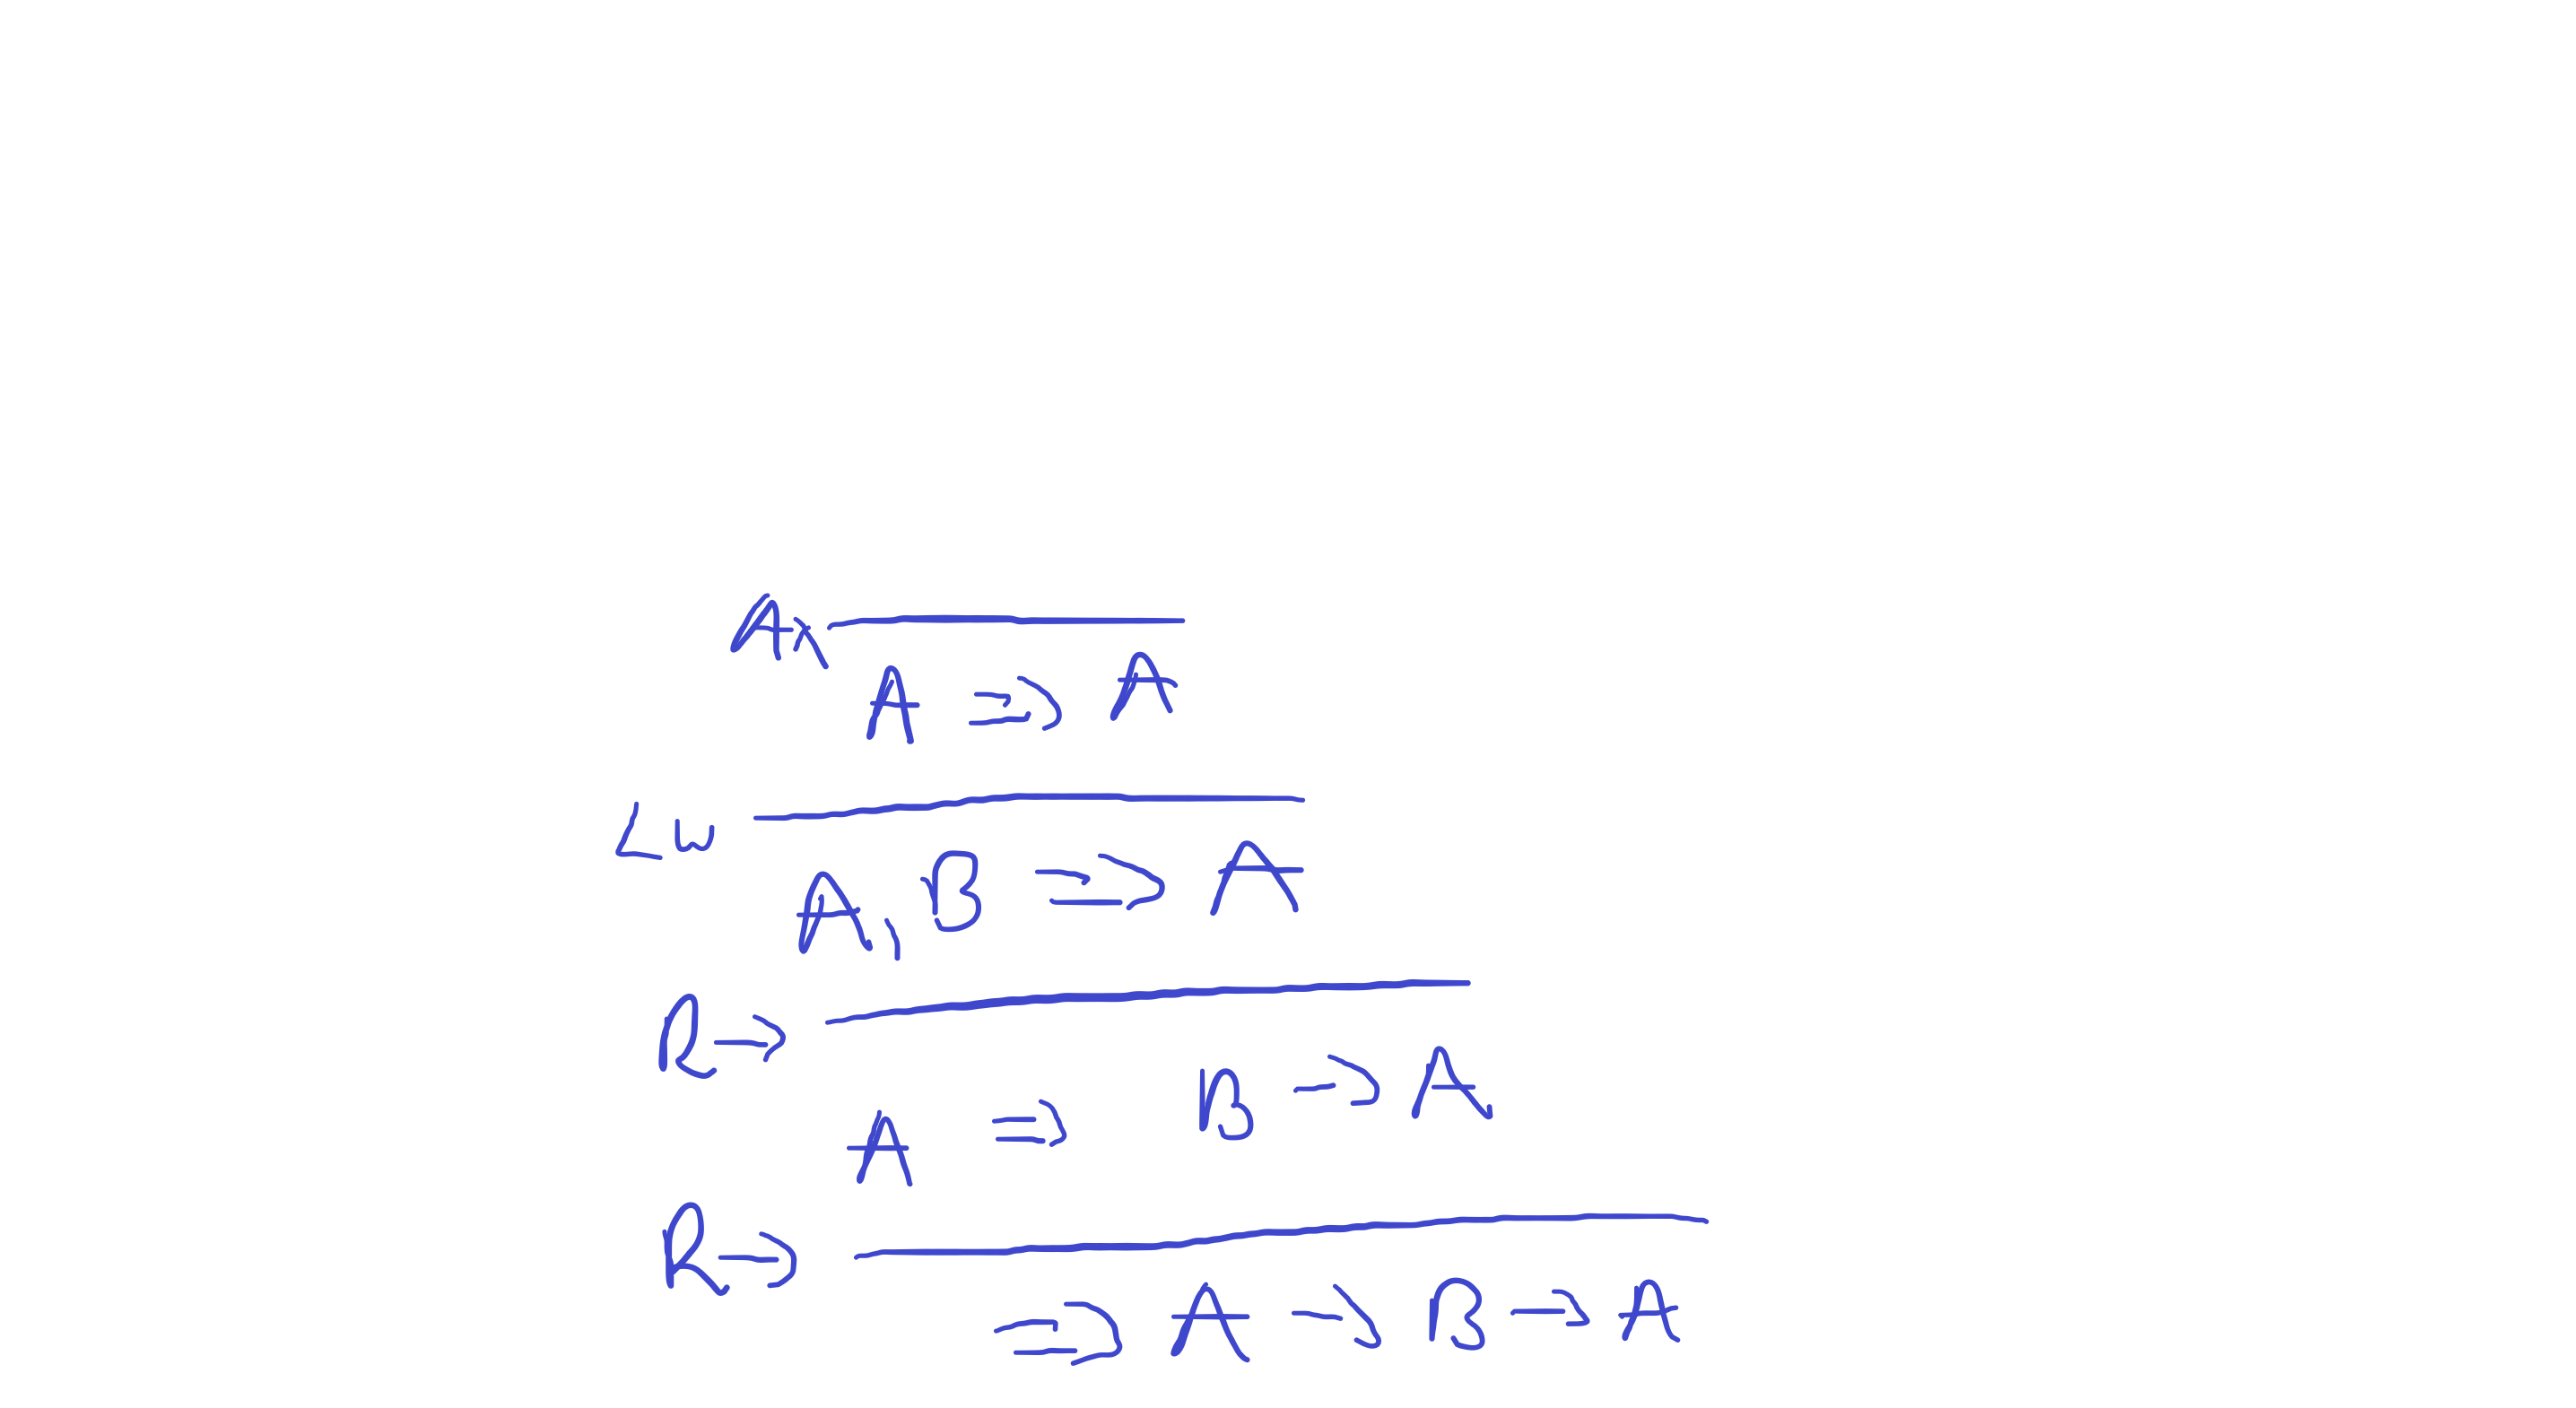 Ax
A ⇒ A
Lw
A, B ⇒ A
R→
A ⇒ B → A
R→
⇒ A → B → A